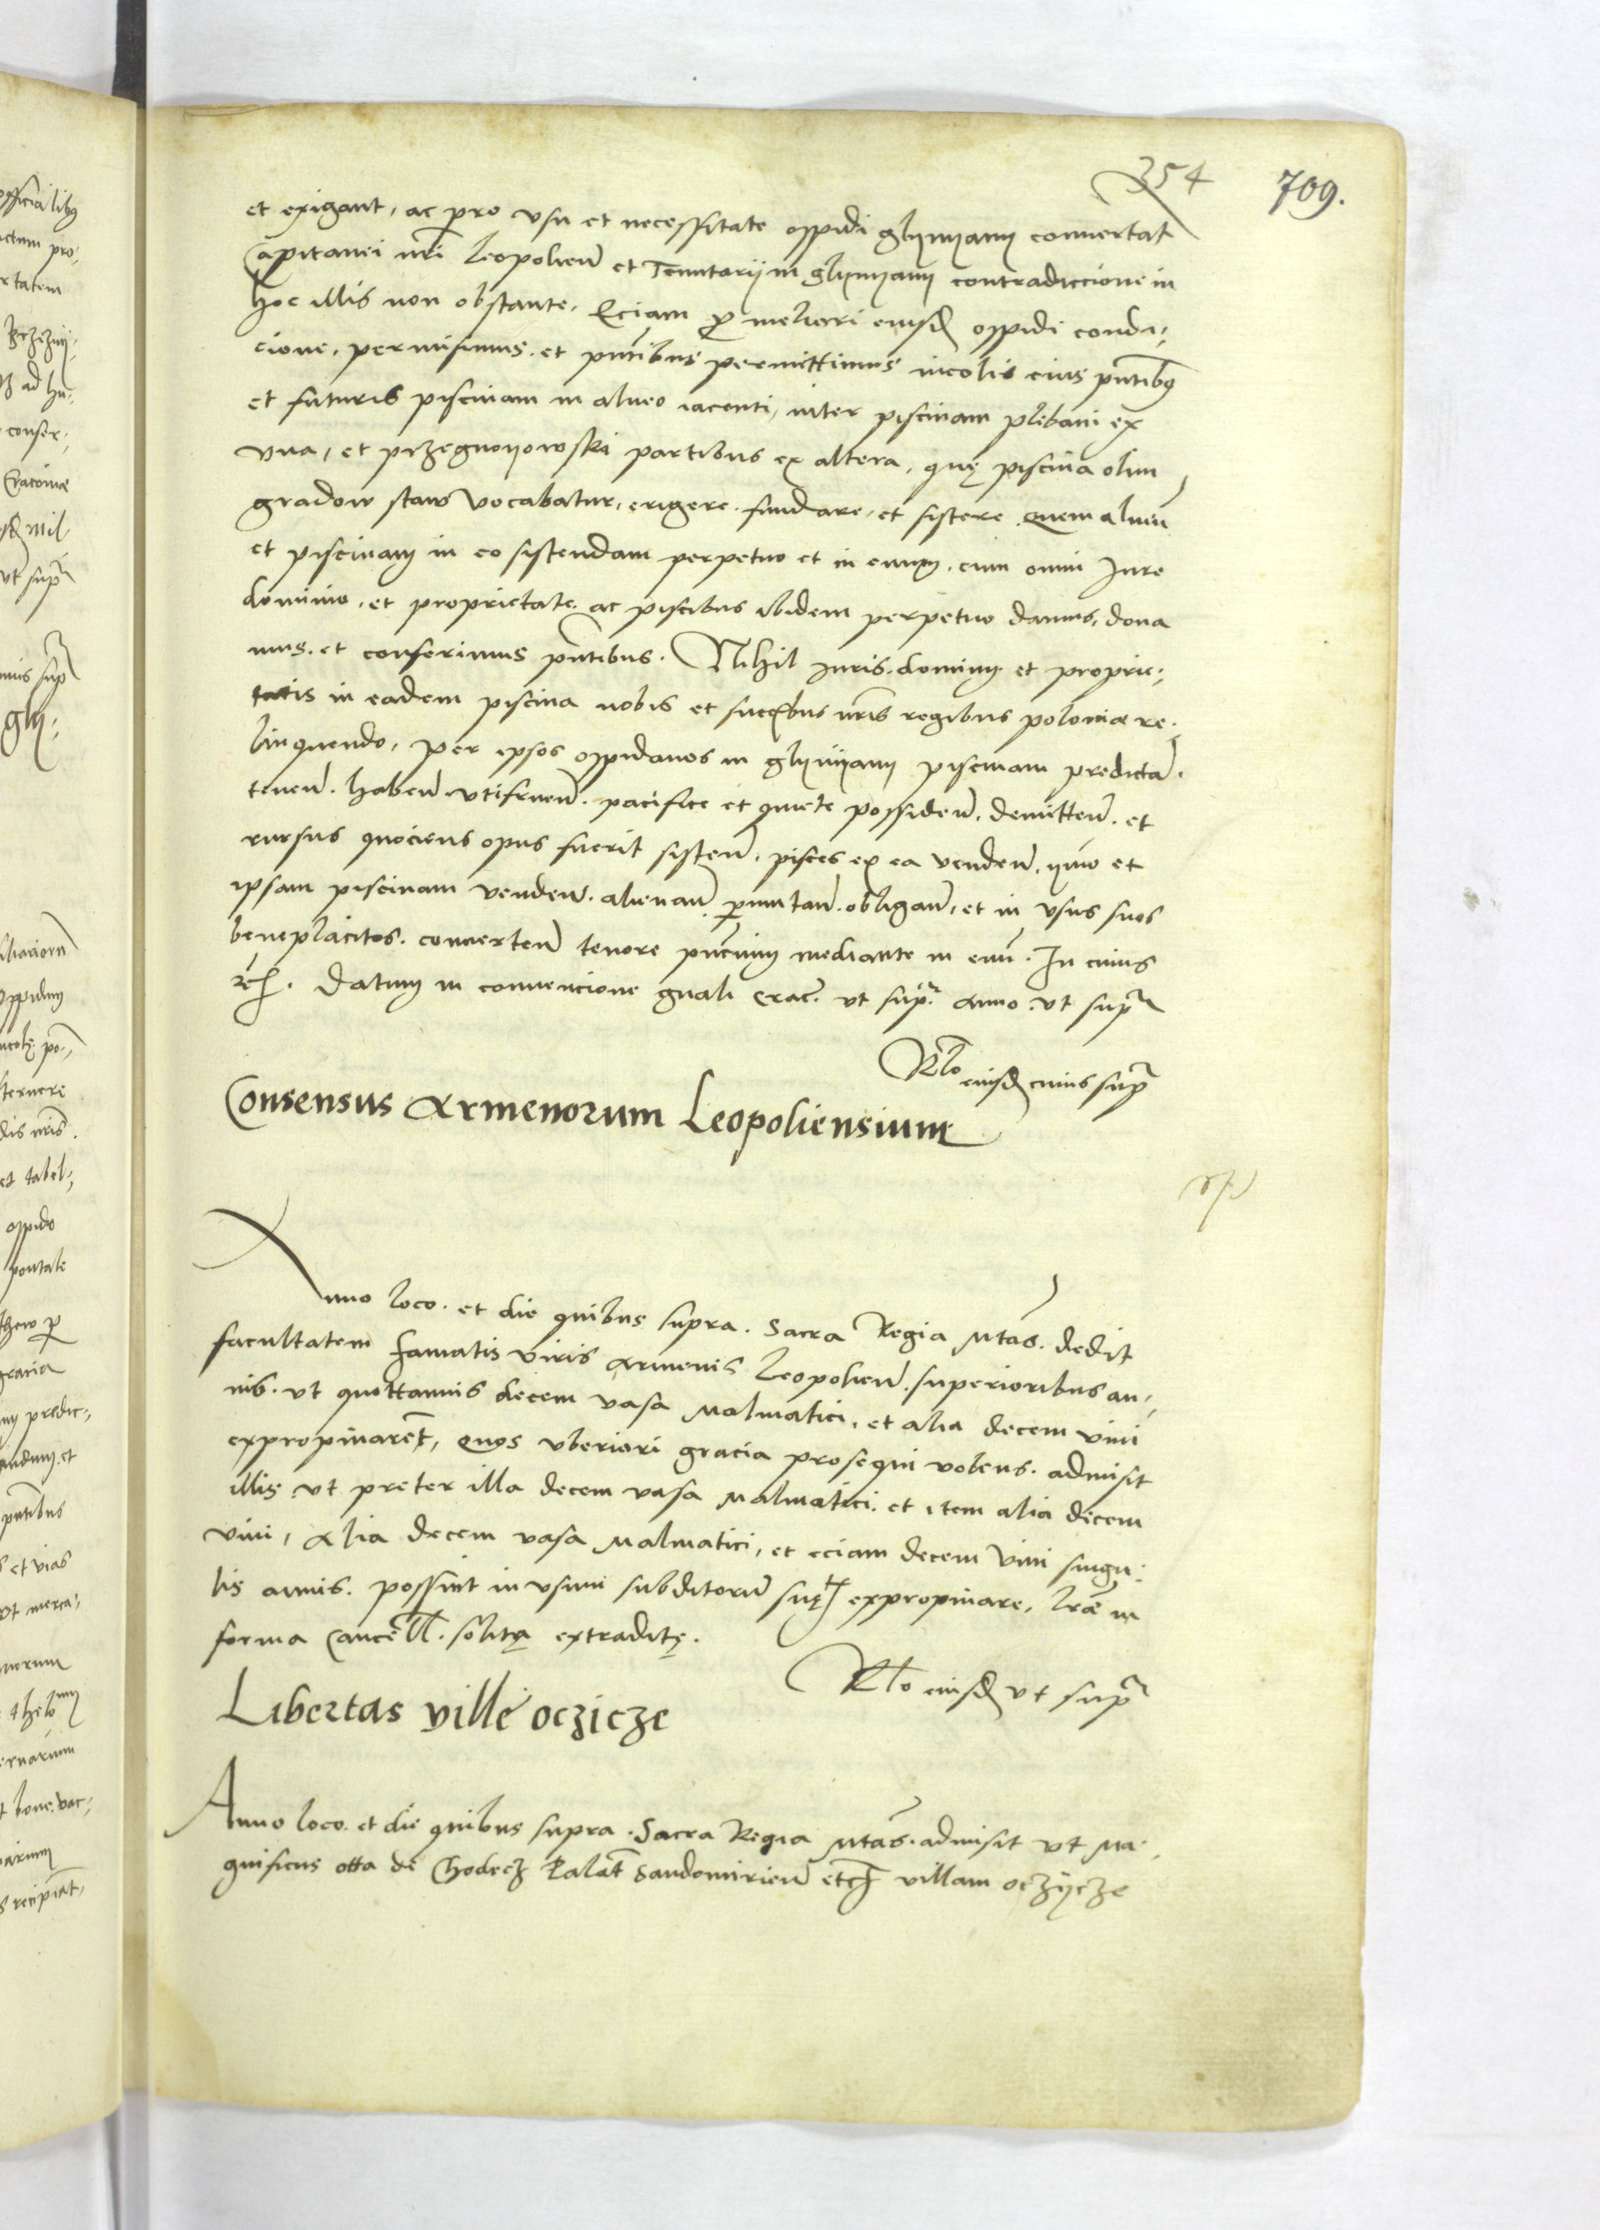 354
709.
et exigant, ac pro usu et necessitate oppidi glynyany convertat
Capitanei nri Leopolien et Tenutarij in glynyany contradiccione in
hoc illis non obstante. Eciam p meliori eiusd oppidi condi,
cione, permisimus et pntibus permittimus incolis eius pntibus
et futuris piscinam in alveo iacenti, inter piscinam plebani ex
una, et przegnoyowski partibus ex altera, quę piscina olim
gradow staw vocabatur, erigere, fundare, et sistere. Quem alveu
et piscinam in eo sistendam perpetuo et in evum, cum omni Jure
dominio, et proprietate ac piscibus ibidem perpetuo damus, dona
mus, et conferimus pntibus. Nihil iuris, dominij et proprie,
tatis in eadem piscina nobis et succribus nris regibus poloniæ re,
linquendo, per ipsos oppidanos in glynyany piscinam predictā.
tenen. haben. utifruen. pacifice et quiete possiden. demitten. et
rursus quociens opus fuerit sisten, pisces ex ea venden. ymo et
ipsam piscinam venden. alienan. pmutan. obligan, et in usus suos
beneplacitos. converten tenore pncium mediante in evu. In cuius
rei. Datum in convencione gnali Crac. ut supra anno ut supra
Rlo eiusd cuius supra
Consensus Armenorum Leopoliensium
Anno loco et die quibus supra. Sacra Regia Mtas. dedit
facultatem famatis viris Armenis Leopolien. superioribus an,
nis. ut quottannis decem vasa Malmatici, et alia decem vini
expropinarent, Quos uberiori gracia prosequi volens. admisit
illis ut preter illa decem vasa Malmatici et item alia decem
vini, Alia decem vasa Malmatici, et eciam decem vini singu,
lis annis. possint in usum subditoru suę expropinare, lræ in
forma Cancell. solita extraditę.
Rlo eiusd ut supra
Libertas ville oczicze
Anno loco et die quibus supra. Sacra Regia Mtas. admisit ut Ma,
gnificus otta de Chodecz Palat Sandomirien etc villam oczycze